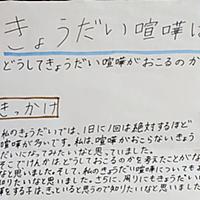 きょうだい喧嘩は
どうしてきょうだい喧嘩がおこるのか
きっかけ
私のきょうだいでは、1日に1回は絶対するほど
喧嘩が多いです。私は、喧嘩がおこらないきょう
だいになってみたいなと思っていました。
そこでけんかは、どうしておこるのかを考えたことがな
なと思いました。そして、私のきょうだい喧嘩についてもよ
知りたいなと思いました。さらに、周りにもきょうだいの
喧をする本は、きっといると思うので知りたいなと思いまし